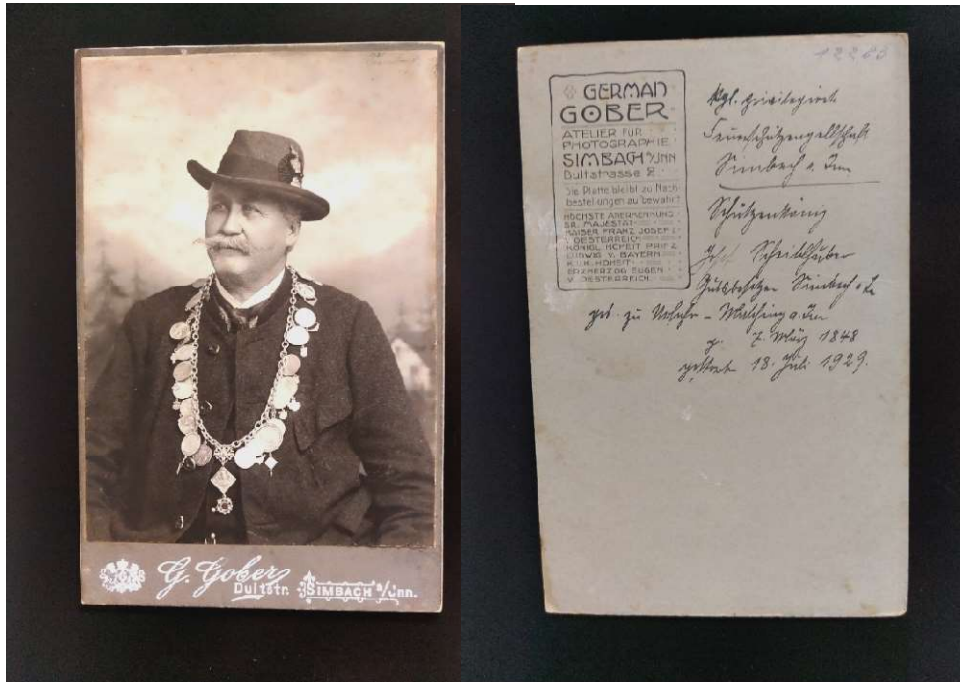 G. Gober
Dultstr. SIMBACH a/Inn.
12263
GERMAN
GOBER
ATELIER FÜR
PHOTOGRAPHIE
SIMBACH a/INN
Dultstrasse
Die Platte bleibt zu Nach-
bestellungen aufbewahrt
HÖCHSTE ANERKENNUNG
SR. MAJESTÄT
KAISER FRANZ JOSEF I.
V. OESTERREICH
KÖNIGL. HOHEIT PRINZ
LUDWIG V. BAYERN
K. K. HOHEIT
ERZHERZOG EUGEN
V. OESTERREICH.
Kgl. privilegierte
Feuerschützengesellschaft
Simbach a. Inn
Schützenkönig
Gutsbesitzer Simbach a. In
geb. zu a. Inn
7. März 1848
gestorb. 18. Juli 1929.